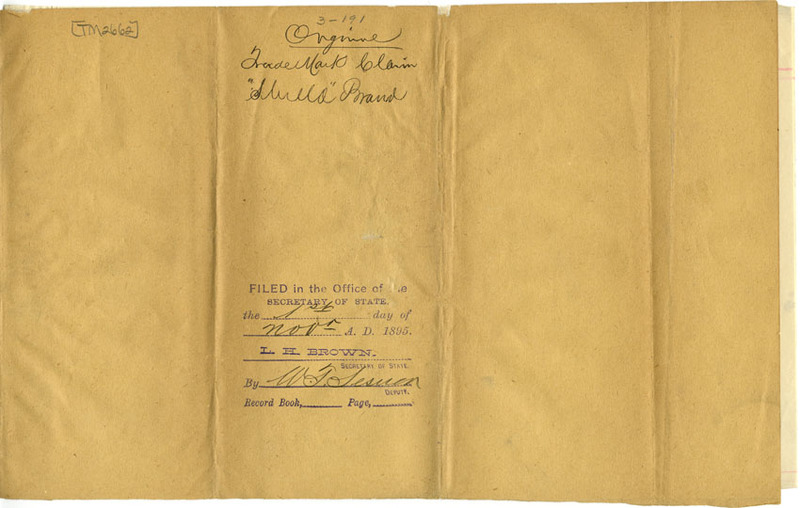 [TM2662]
3-191
Original
Trade Mark Claim
"Shield" Brand
FILED in the Office of the
SECRETARY OF STATE,
the 1st day of
Novr A. D. 1895.
L. H. BROWN.
SECRETARY OF STATE.
By W. F.
DEPUTY.
Record Book, Page,